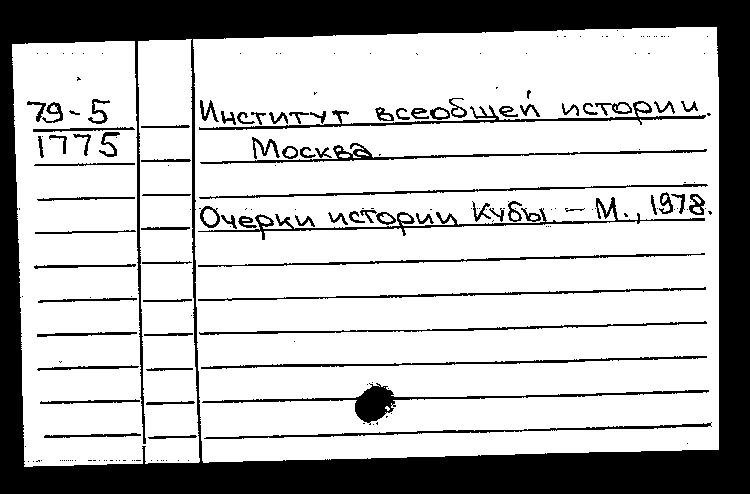 79-5
1775
Институт всеобщей истории.
Москва.
Очерки истории Кубы. — М., 1978.